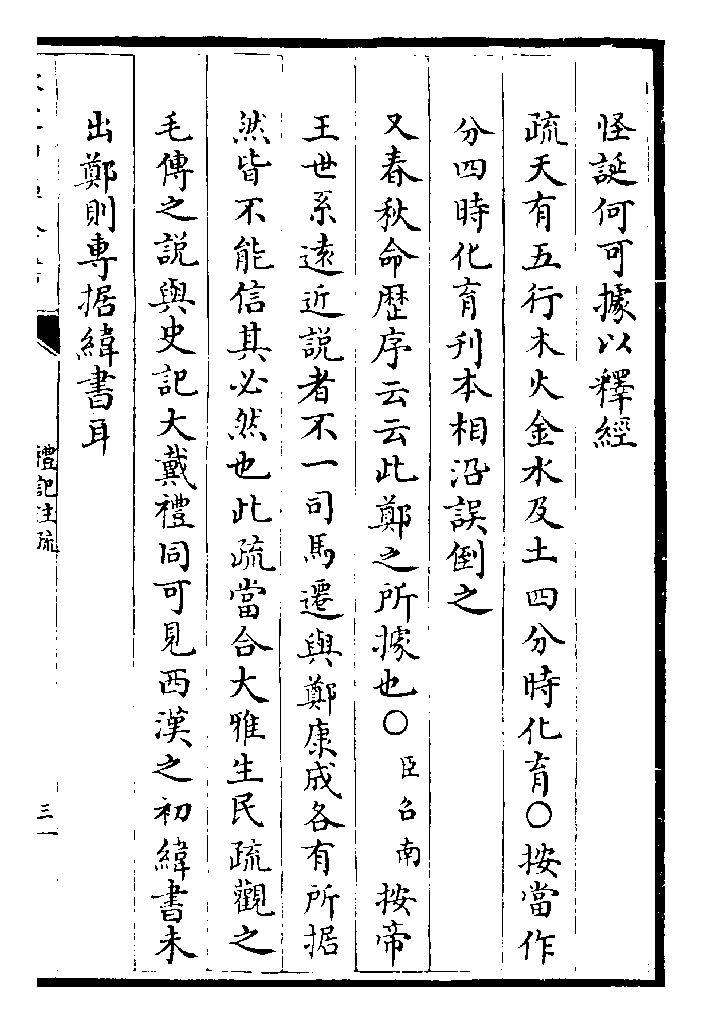 怪誕何可據以釋經
疏天有五行木火金水及土四分時化育○按當作
分四時化育刊本相沿誤倒之
又春秋命歴序云云此鄭之所據也○臣召南按帝
王世系遠近説者不一司馬遷與鄭康成各有所据
然皆不能信其必然也此疏當合大雅生民疏觀之
毛傳之説與史記大戴禮同可見西漢之初緯書未
出鄭則專据緯書耳
禮記注疏
三一